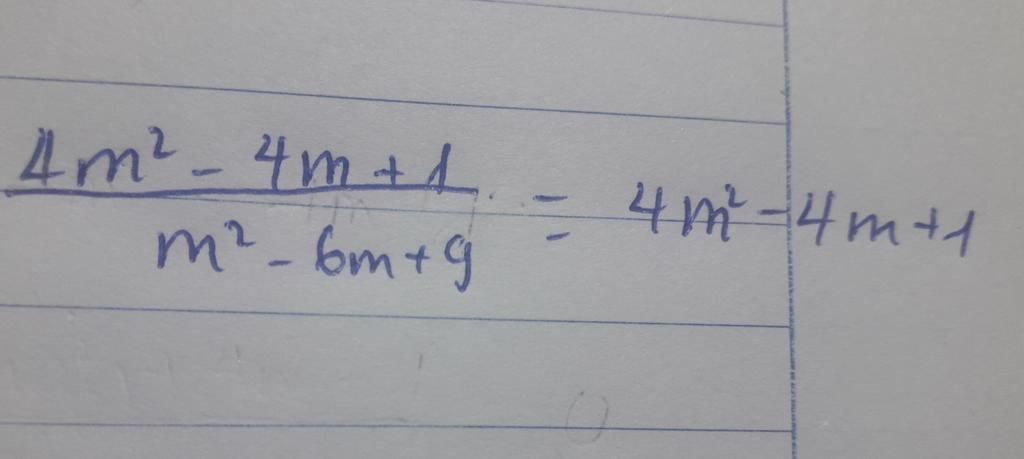 4m² - 4m + 1
m² - 6m + 9
= 4m² - 4m + 1